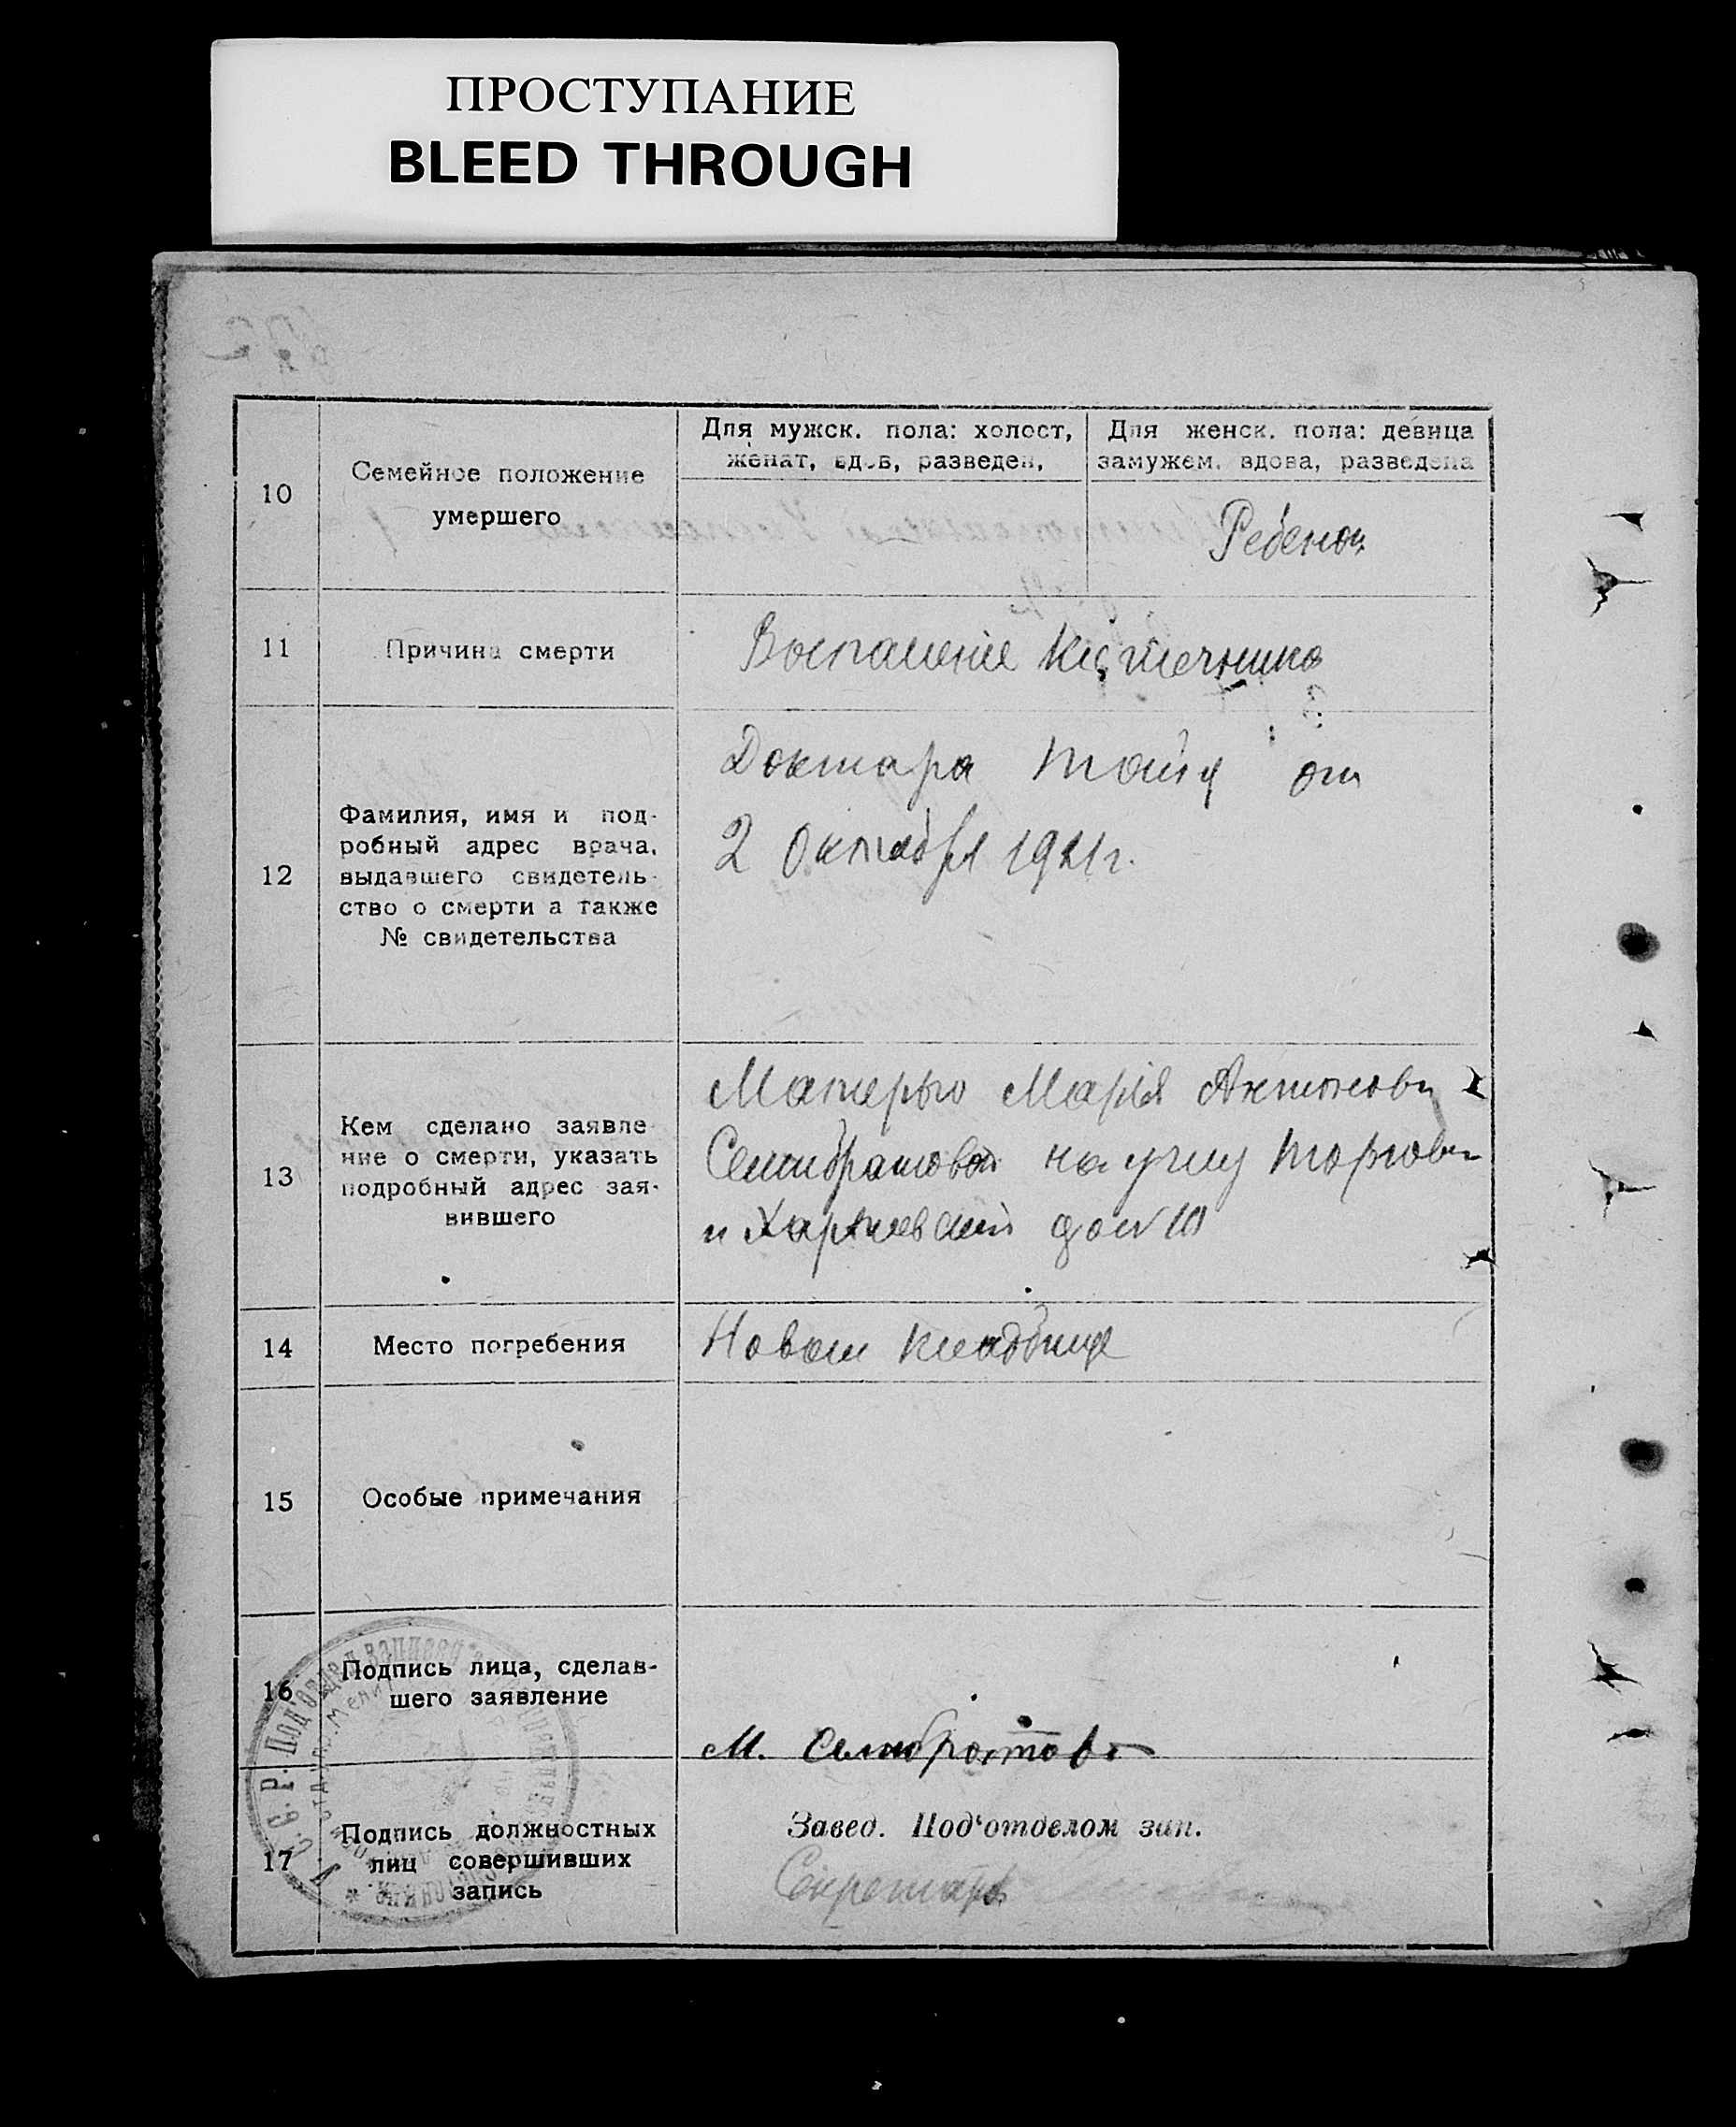 ПРОСТУПАНИЕ
BLEED THROUGH
10
Семейное положение
умершего
Для мужск. пола: холост,
женат, вдов, разведен,
Для женск. пола: девица
замужем, вдова, разведена
Ребенок
11
Причина смерти
Воспаление Кишечника
12
Фамилия, имя и под-
робный адрес врача,
выдавшего свидетель-
ство о смерти а также
№ свидетельства
Доктара от
2 Октября 1921 г.
13
Кем сделано заявле
ние о смерти, указать
подробный адрес зая-
вившего
Матерью Марія Антонови
Семибратовой на углу Торгови
и Харкевскій дом 10
14
Место погребения
Новом кладбище
15
Особые примечания
16
Подпись лица, сделав-
шего заявление
М. Семибратова
17
Подпись должностных
лиц совершивших
запись
Завед. Под'отделом зап.
Секретарь